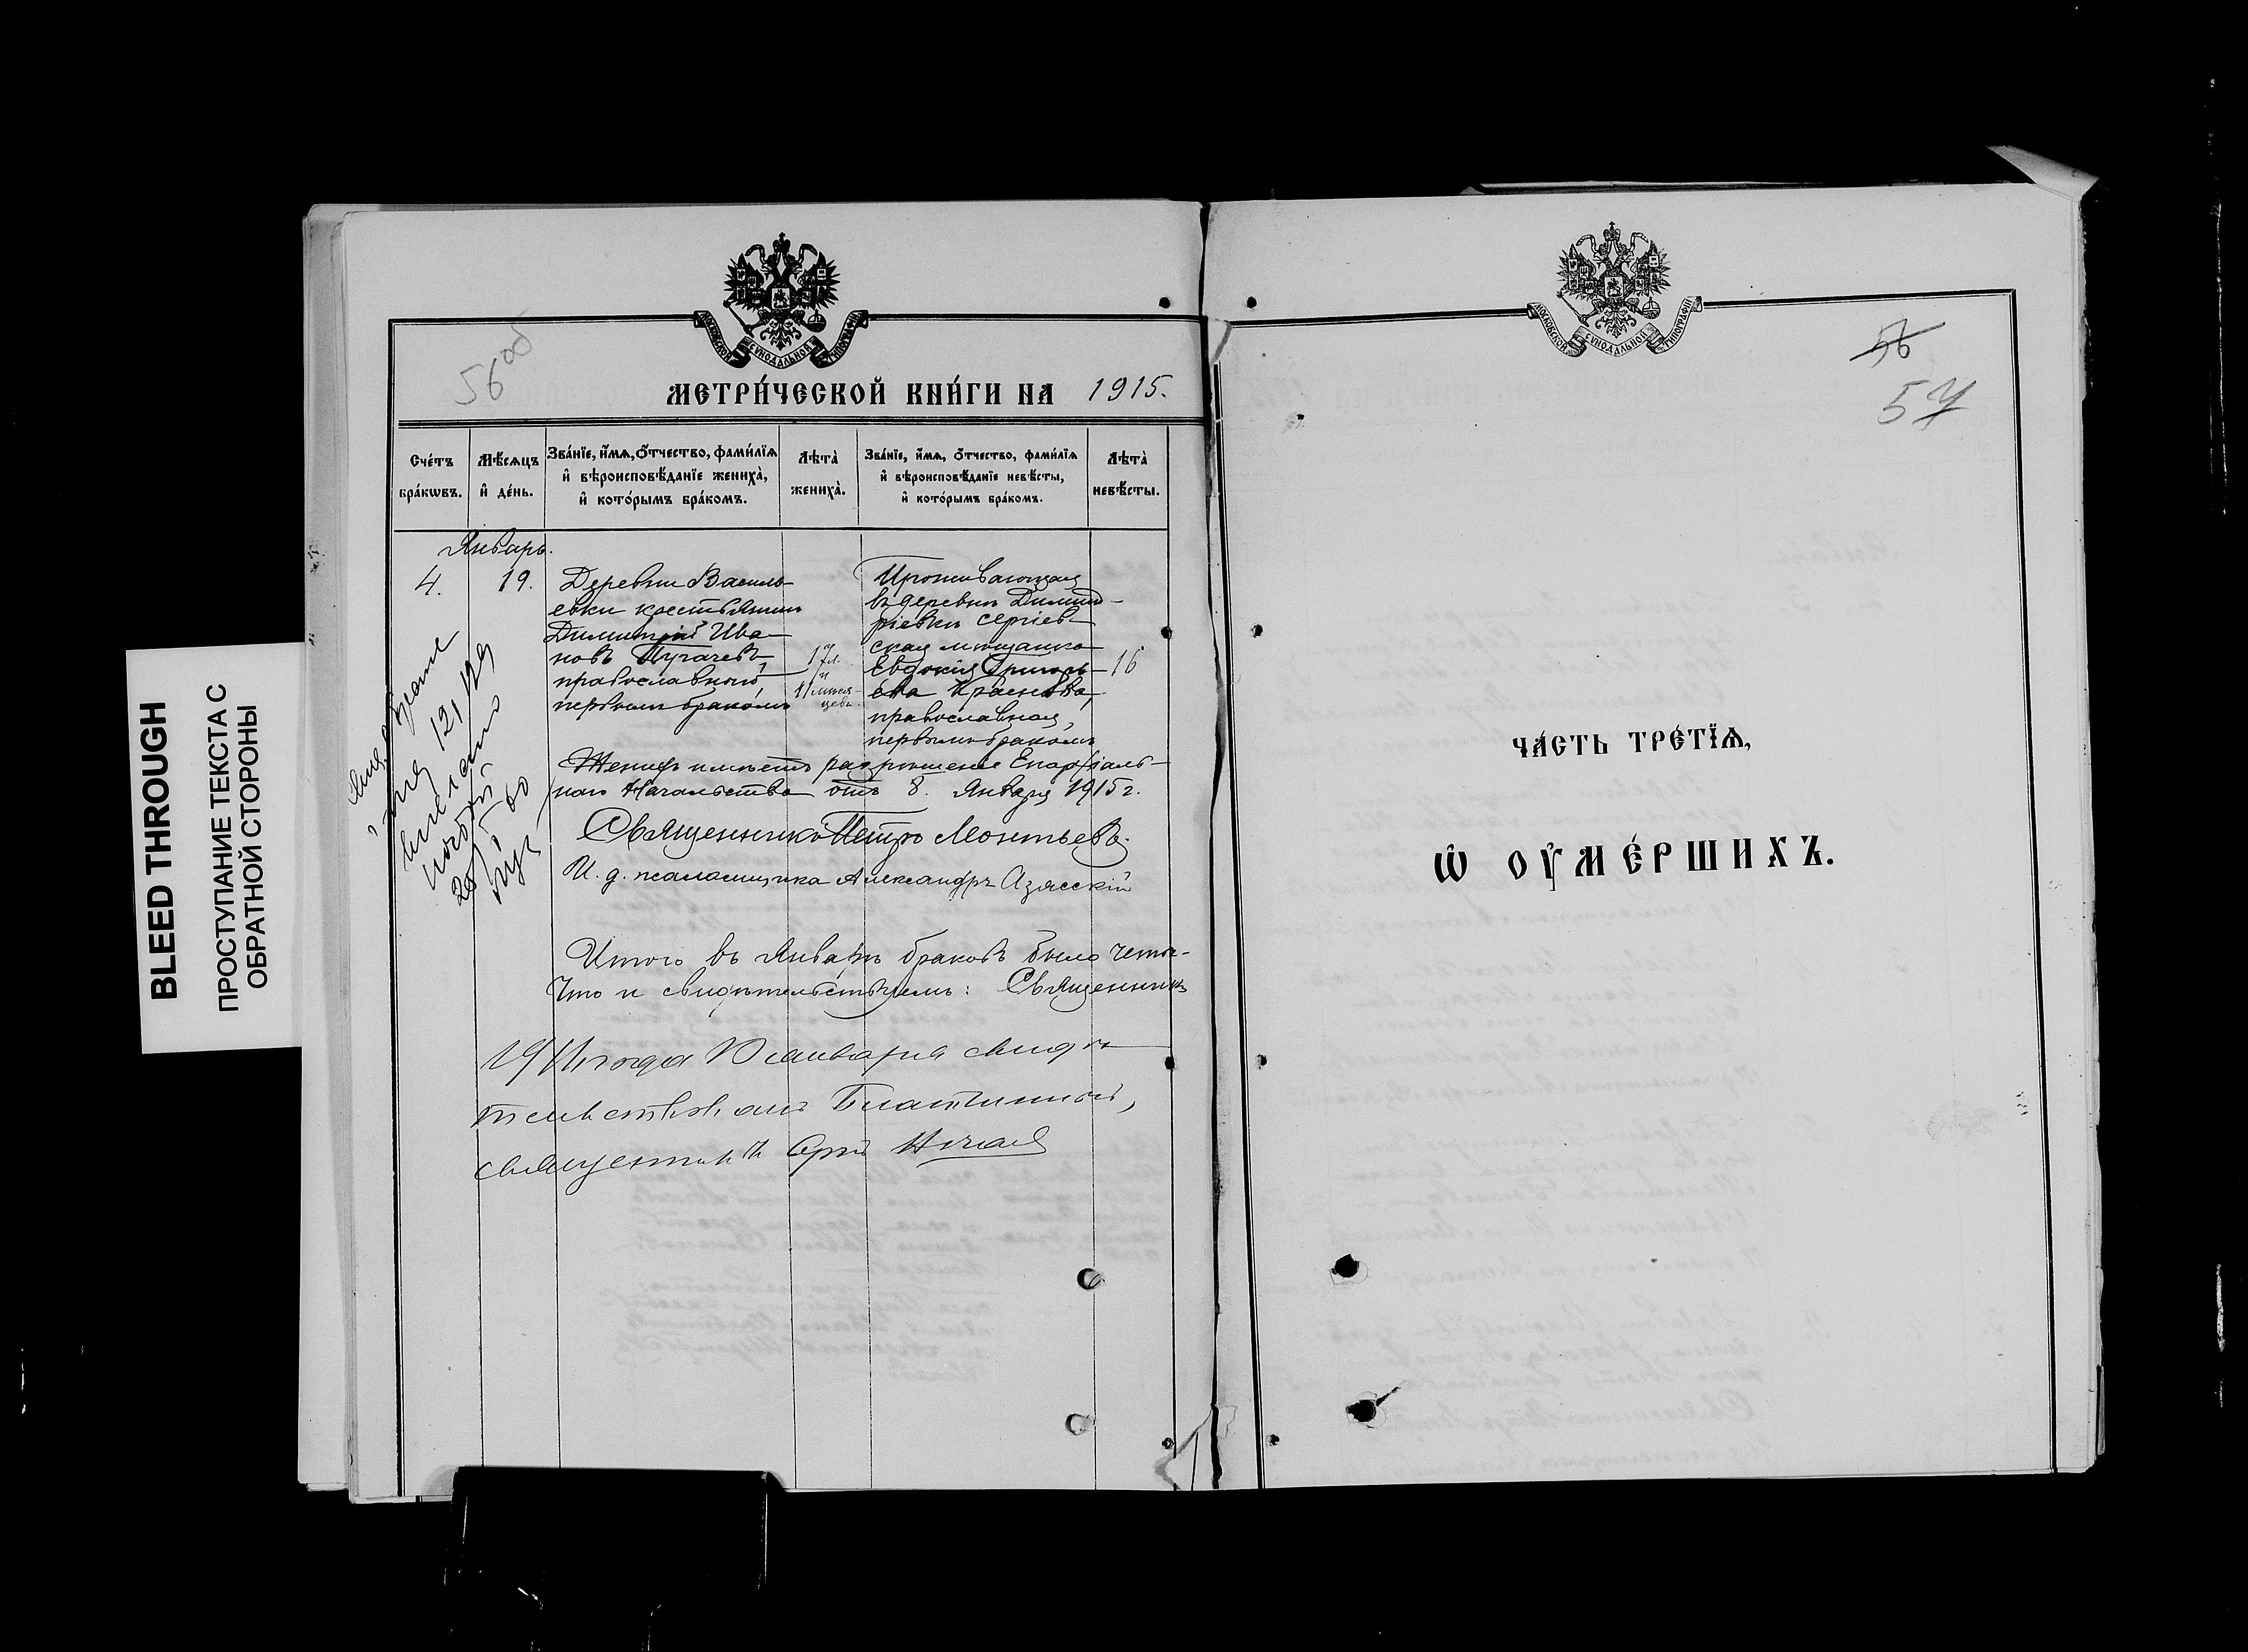 BLEED THROUGH
ПРОСТУПАНИЕ ТЕКСТА С
ОБРАТНОЙ СТОРОНЫ
МОСКОВСКОЙ СУНОДАЛЬНОЙ ТИПОГРАФІИ
56 об
МЕТРИ́ЧЕСКОЙ КНИ́ГИ НА 1915.
Сче́тъ бра́кѡвъ.
Мѣ́сяцъ и҆ де́нь.
Зва́нїе, и҆́мя, ѻ҆́тчество, фами́лїя и҆ вѣроисповѣ́данїе жениха̀, и҆ кото́рымъ бра́комъ.
Лѣта̀ жениха̀.
Зва́нїе, и҆́мя, ѻ҆́тчество, фами́лїя и҆ вѣроисповѣ́данїе невѣ́сты, и҆ кото́рымъ бра́комъ.
Лѣта̀ невѣ́сты.
Январь.
4.
19.
Деревни Василь-
евки крестьянинъ
Димитрій Ива-
новъ Пугачевъ,
православный,
первымъ бракомъ
17 л.
и
11 мѣся-
цевъ.
Проживающая
въ деревнѣ Димит-
ріевкѣ Сергіев-
ская мѣщанка
Евдокія Григорь-
ева Краснова,
православная,
первымъ бракомъ
16
Женихъ имѣетъ разрѣшеніе Епархіаль-
наго Начальства отъ 8. Января 1915 г.
Священникъ Петръ Леонтьевъ.
И. д. псаломщика Александръ Азясскій
Итого въ Январѣ браковъ было четы-
Что и свидѣтельствуемъ: Священникъ
года января свидѣ-
тельствовалъ Благочинный,
священникъ
МОСКОВСКОЙ СУНОДАЛЬНОЙ ТИПОГРАФІИ
56
57
ЧА́СТЬ ТРЕ́ТЇѦ,
Ѡ҆ ОУ҆МЕ́РШИХЪ.